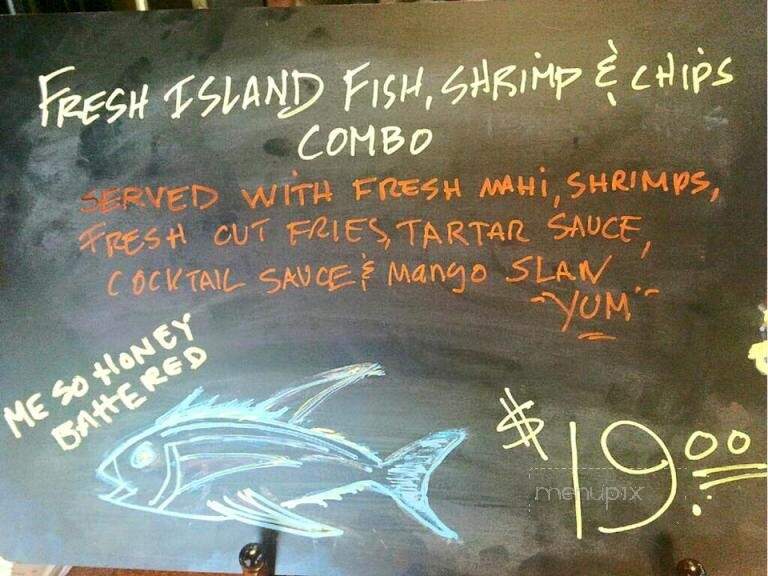 FRESH ISLAND FISH, SHRIMP & CHIPS
COMBO
SERVED WITH FRESH MAHI, SHRIMPS,
FRESH CUT FRIES, TARTAR SAUCE,
COCKTAIL SAUCE & Mango SLAW
"YUM"
ME SO HONEY
BATTERED
$19.00
menupix